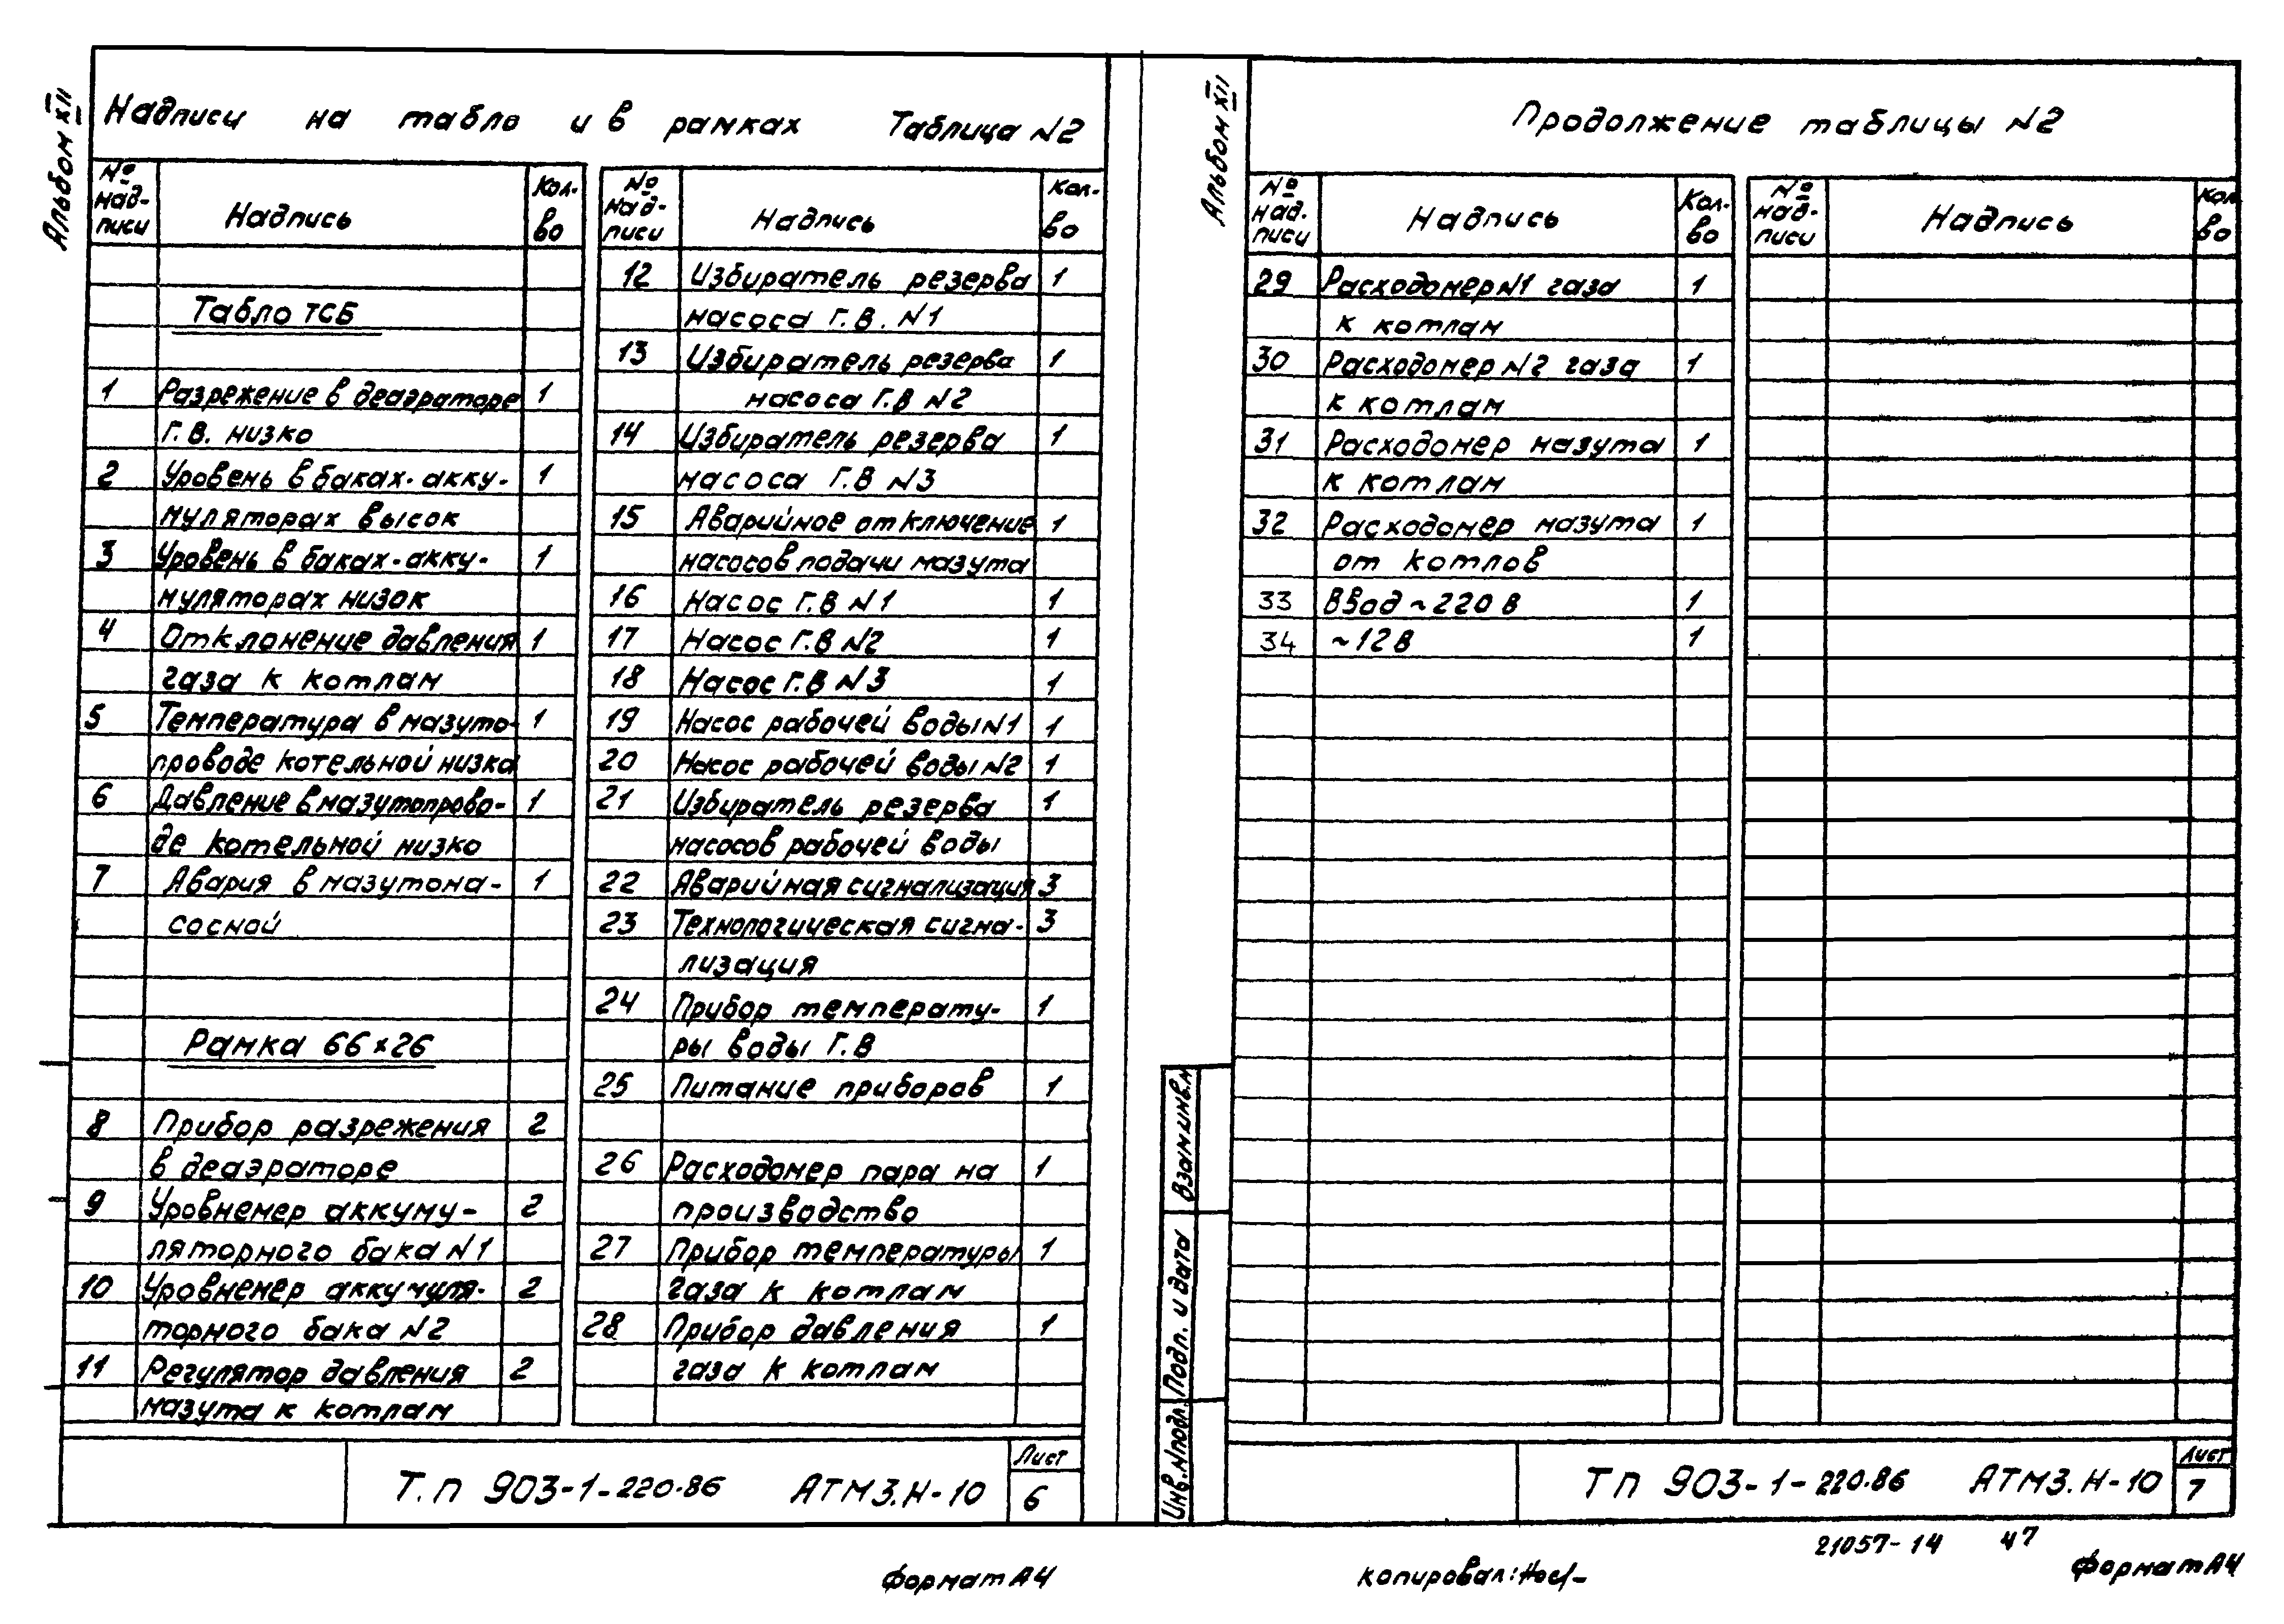 Альбом XII
Надписи на табло и в рамках Таблица №2
№ над-писи Надпись Кол-во
Табло ТСБ
1 Разрежение в деаэраторе 1
Г.В. низко
2 Уровень в баках-акку- 1
муляторах высок
3 Уровень в баках-акку- 1
муляторах низок
4 Отклонение давления 1
газа к котлам
5 Температура в мазуто- 1
проводе котельной низка
6 Давление в мазутопрово- 1
де котельной низко
7 Авария в мазутона- 1
сосной
Рамка 66×26
8 Прибор разрежения 2
в деаэраторе
9 Уровнемер аккуму- 2
ляторного бака №1
10 Уровнемер аккумуля- 2
торного бака №2
11 Регулятор давления 2
мазута к котлам
№ над-писи Надпись Кол-во
12 Избиратель резерва 1
насоса Г.В. №1
13 Избиратель резерва 1
насоса Г.В №2
14 Избиратель резерва 1
насоса Г.В №3
15 Аварийное отключение 1
насосов подачи мазута
16 Насос Г.В №1 1
17 Насос Г.В №2 1
18 Насос Г.В №3 1
19 Насос рабочей воды №1 1
20 Насос рабочей воды №2 1
21 Избиратель резерва 1
насосов рабочей воды
22 Аварийная сигнализация 3
23 Технологическая сигна- 3
лизация
24 Прибор температу- 1
ры воды Г.В
25 Питание приборов 1
26 Расходомер пара на 1
производство
27 Прибор температуры 1
газа к котлам
28 Прибор давления 1
газа к котлам
Т.п 903-1-220.86 АТМ3.Н-10
Лист
6
Формат А4
Альбом XII
Продолжение таблицы №2
№ над.писи Надпись Кол-во
29 Расходомер №1 газа 1
к котлам
30 Расходомер №2 газа 1
к котлам
31 Расходомер мазута 1
к котлам
32 Расходомер мазута 1
от котлов
33 Ввод ~220 В 1
34 ~12 В 1
№ над-писи Надпись Кол во
Взам инв.№
Подп. и дата
Инв.№подл.
Т п 903-1-220.86 АТМ3.Н-10
Лист
7
21057-14 47
копировал:
Формат А4